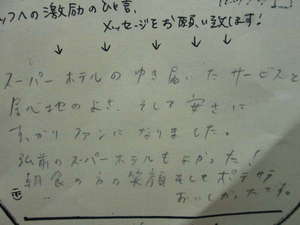 ッフへの激励のひと言、
メッセージをお願い致します!
スーパーホテルのゆき届いたサービスと
居心地のよさ、そして安さに
すっかりファンになりました。
弘前のスーパーホテルもよかった!
朝食の方の笑顔そしてポテサラ
おいしかったです。